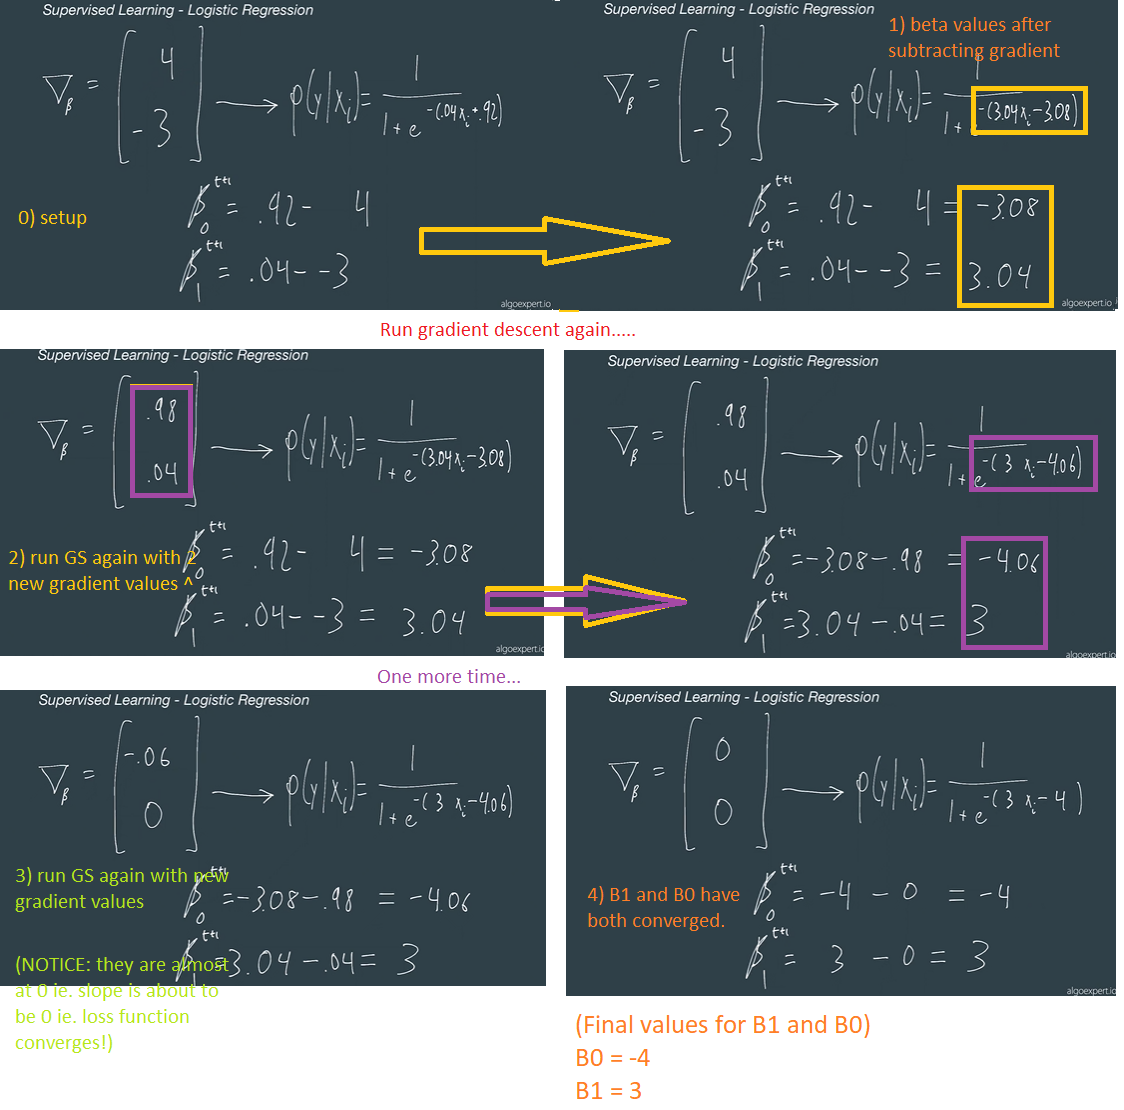 Supervised Learning - Logistic Regression
∇β = [4
-3] → p(y|xi) = 1 / 1 + e^-(.04xi + .92)
0) setup
β0^t+1 = .92 - 4
β1^t+1 = .04 - -3
algoexpert.io
Supervised Learning - Logistic Regression
1) beta values after
subtracting gradient
∇β = [4
-3] → p(y|xi) = 1 / 1 + e^-(3.04xi - 3.08)
β0^t+1 = .92 - 4 = -3.08
β1^t+1 = .04 - -3 = 3.04
algoexpert.io
Run gradient descent again.....
Supervised Learning - Logistic Regression
∇β = [.98
.04] → p(y|xi) = 1 / 1 + e^-(3.04xi - 3.08)
2) run GS again with 2
new gradient values ^
β0^t+1 = .92 - 4 = -3.08
β1^t+1 = .04 - -3 = 3.04
algoexpert.io
Supervised Learning - Logistic Regression
∇β = [.98
.04] → p(y|xi) = 1 / 1 + e^-(3 xi - 4.06)
β0^t+1 = -3.08 - .98 = -4.06
β1^t+1 = 3.04 - .04 = 3
algoexpert.io
One more time...
Supervised Learning - Logistic Regression
∇β = [-.06
0] → p(y|xi) = 1 / 1 + e^-(3 xi - 4.06)
3) run GS again with new
gradient values
β0^t+1 = -3.08 - .98 = -4.06
β1^t+1 = 3.04 - .04 = 3
(NOTICE: they are almost
at 0 ie. slope is about to
be 0 ie. loss function
converges!)
Supervised Learning - Logistic Regression
∇β = [0
0] → p(y|xi) = 1 / 1 + e^-(3 xi - 4)
4) B1 and B0 have
both converged.
β0^t+1 = -4 - 0 = -4
β1^t+1 = 3 - 0 = 3
algoexpert.io
(Final values for B1 and B0)
B0 = -4
B1 = 3